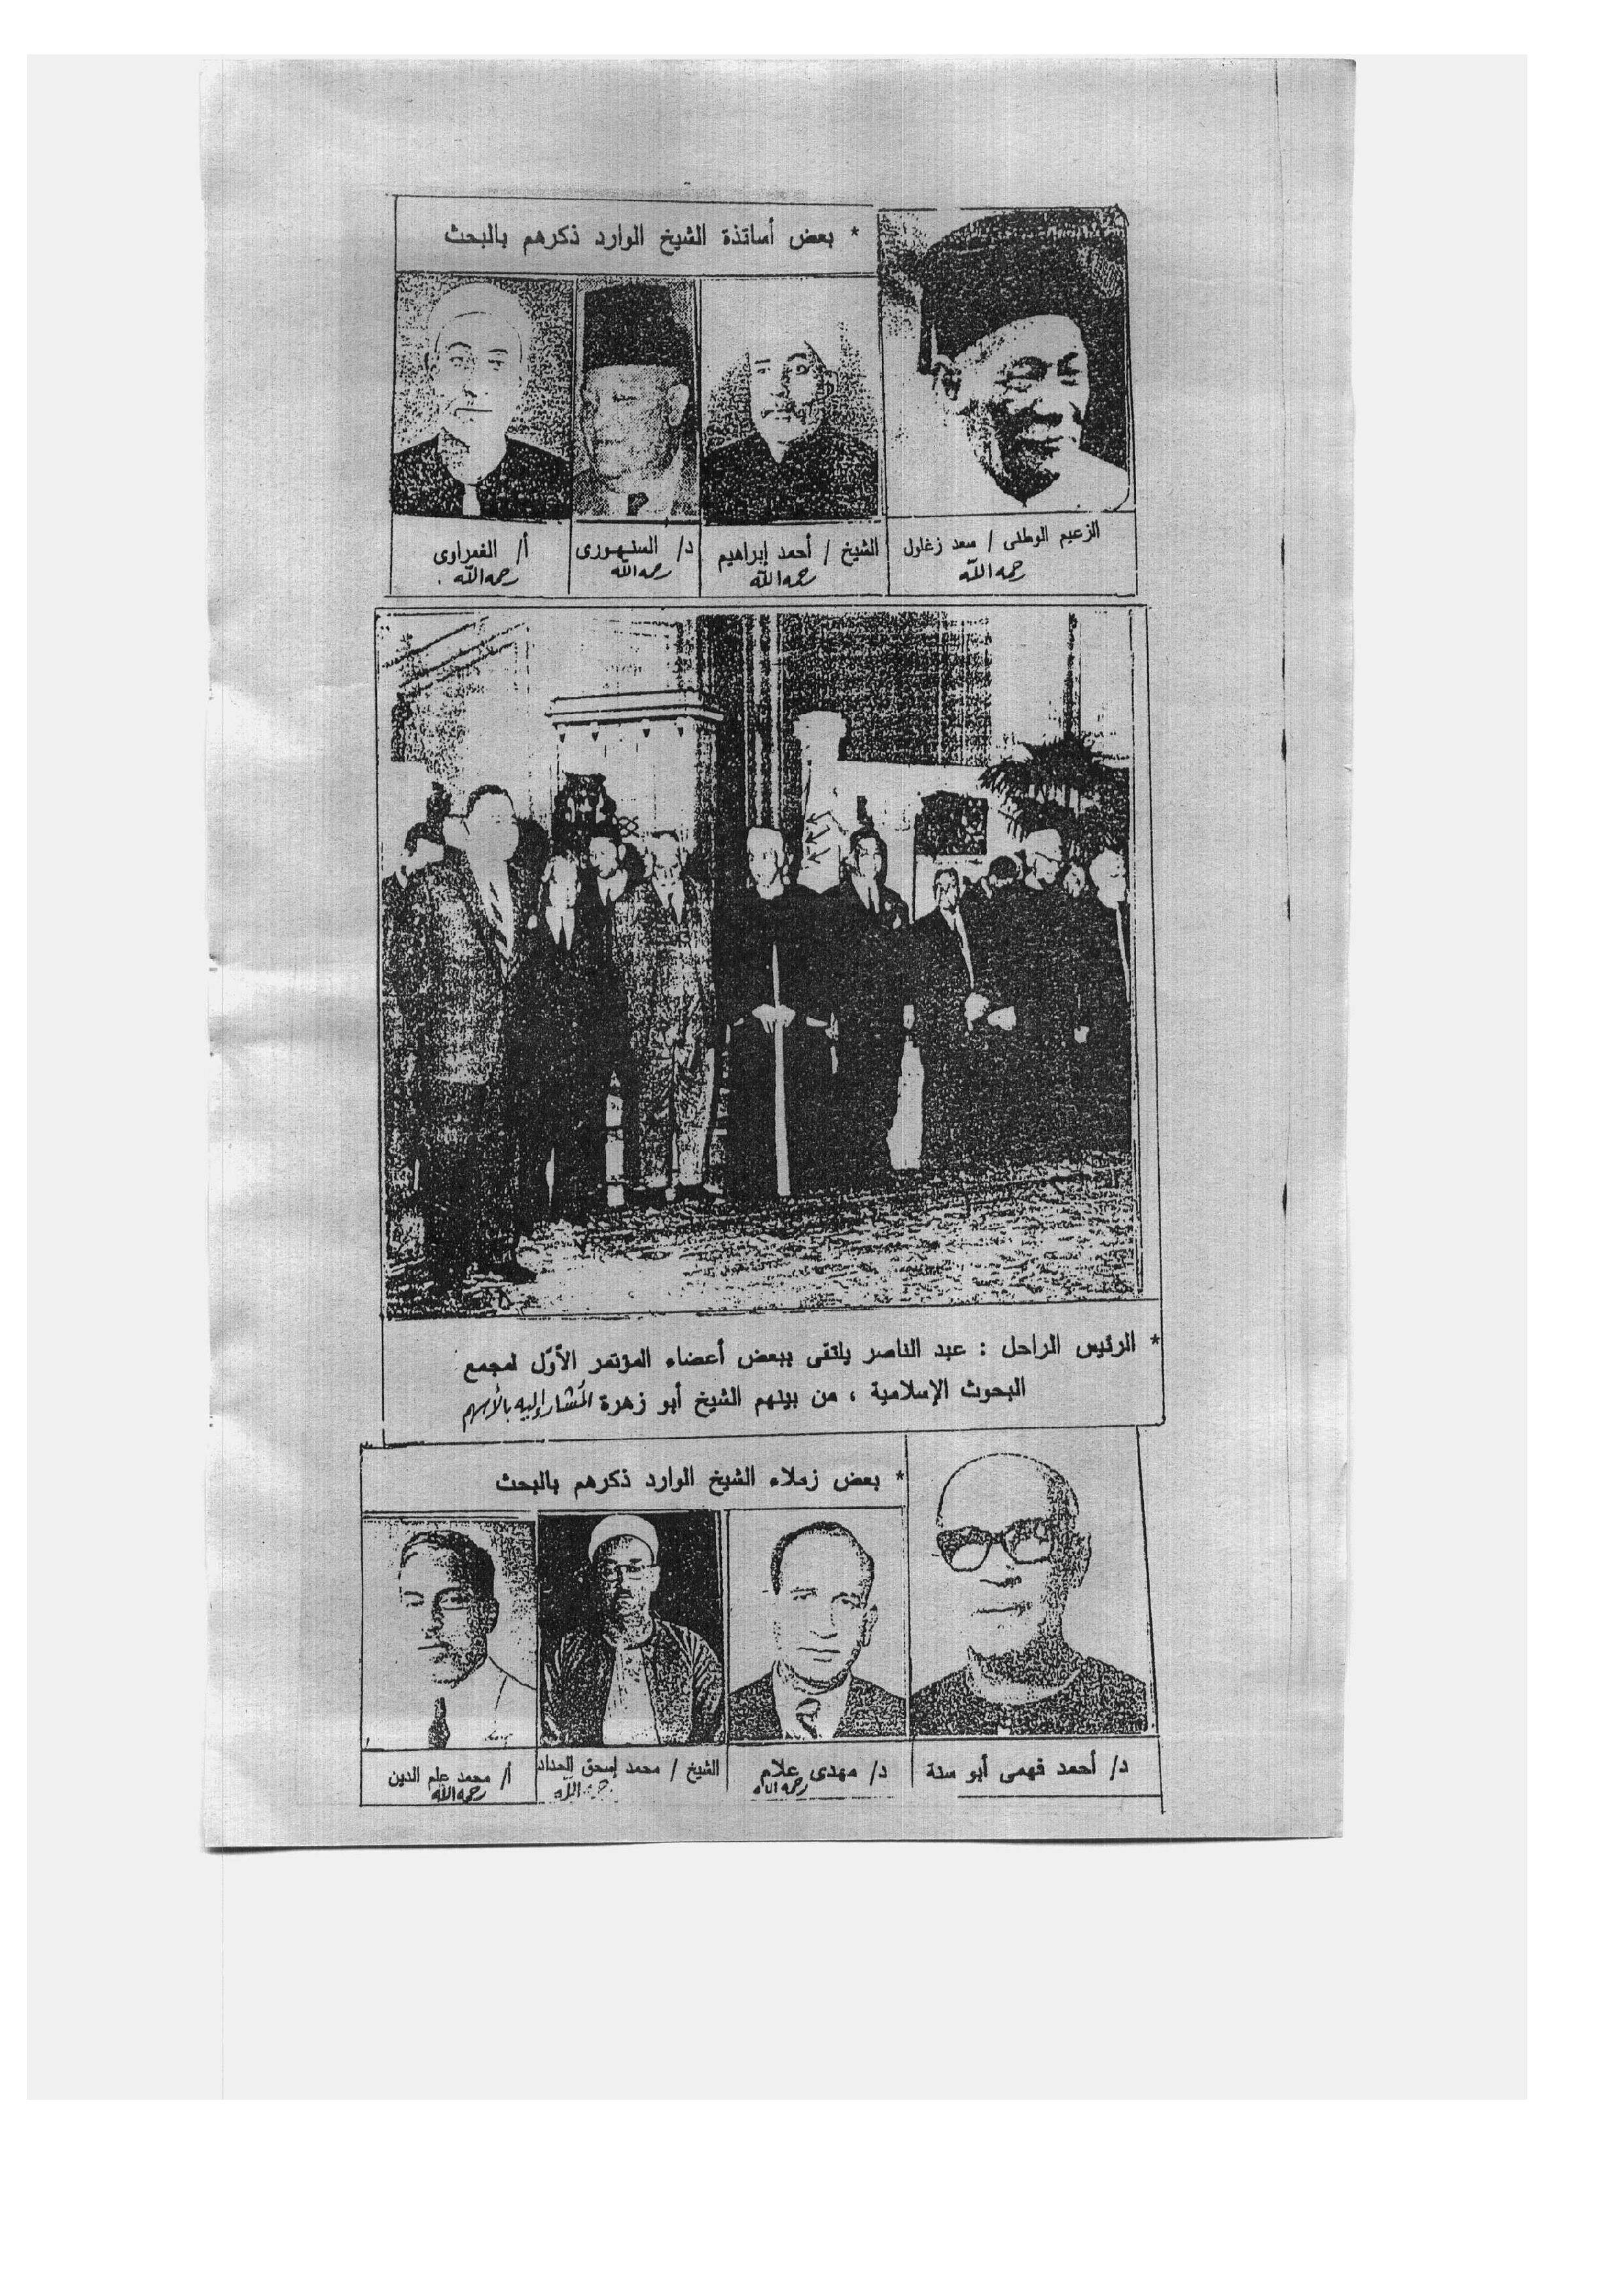 * بعض أساتذة الشيخ الوارد ذكرهم بالبحث
الزعيم الوطنى / سعد زغلول
رحمه الله
الشيخ / أحمد إبراهيم
رحمه الله
د/ السنهورى
رحمه الله
أ/ الغمراوى
رحمه الله .
* الرئيس الراحل : عبد الناصر يلتقى ببعض أعضاء المؤتمر الأوّل لمجمع
البحوث الإسلامية ، من بينهم الشيخ أبو زهرة المُشار إليه بالأسهم
* بعض زملاء الشيخ الوارد ذكرهم بالبحث
د/ أحمد فهمى أبو سنة
د/ مهدى علام
رحمه الله
الشيخ / محمد إسحق الحداد
رحمه الله
أ/ محمد علم الدين
رحمه الله